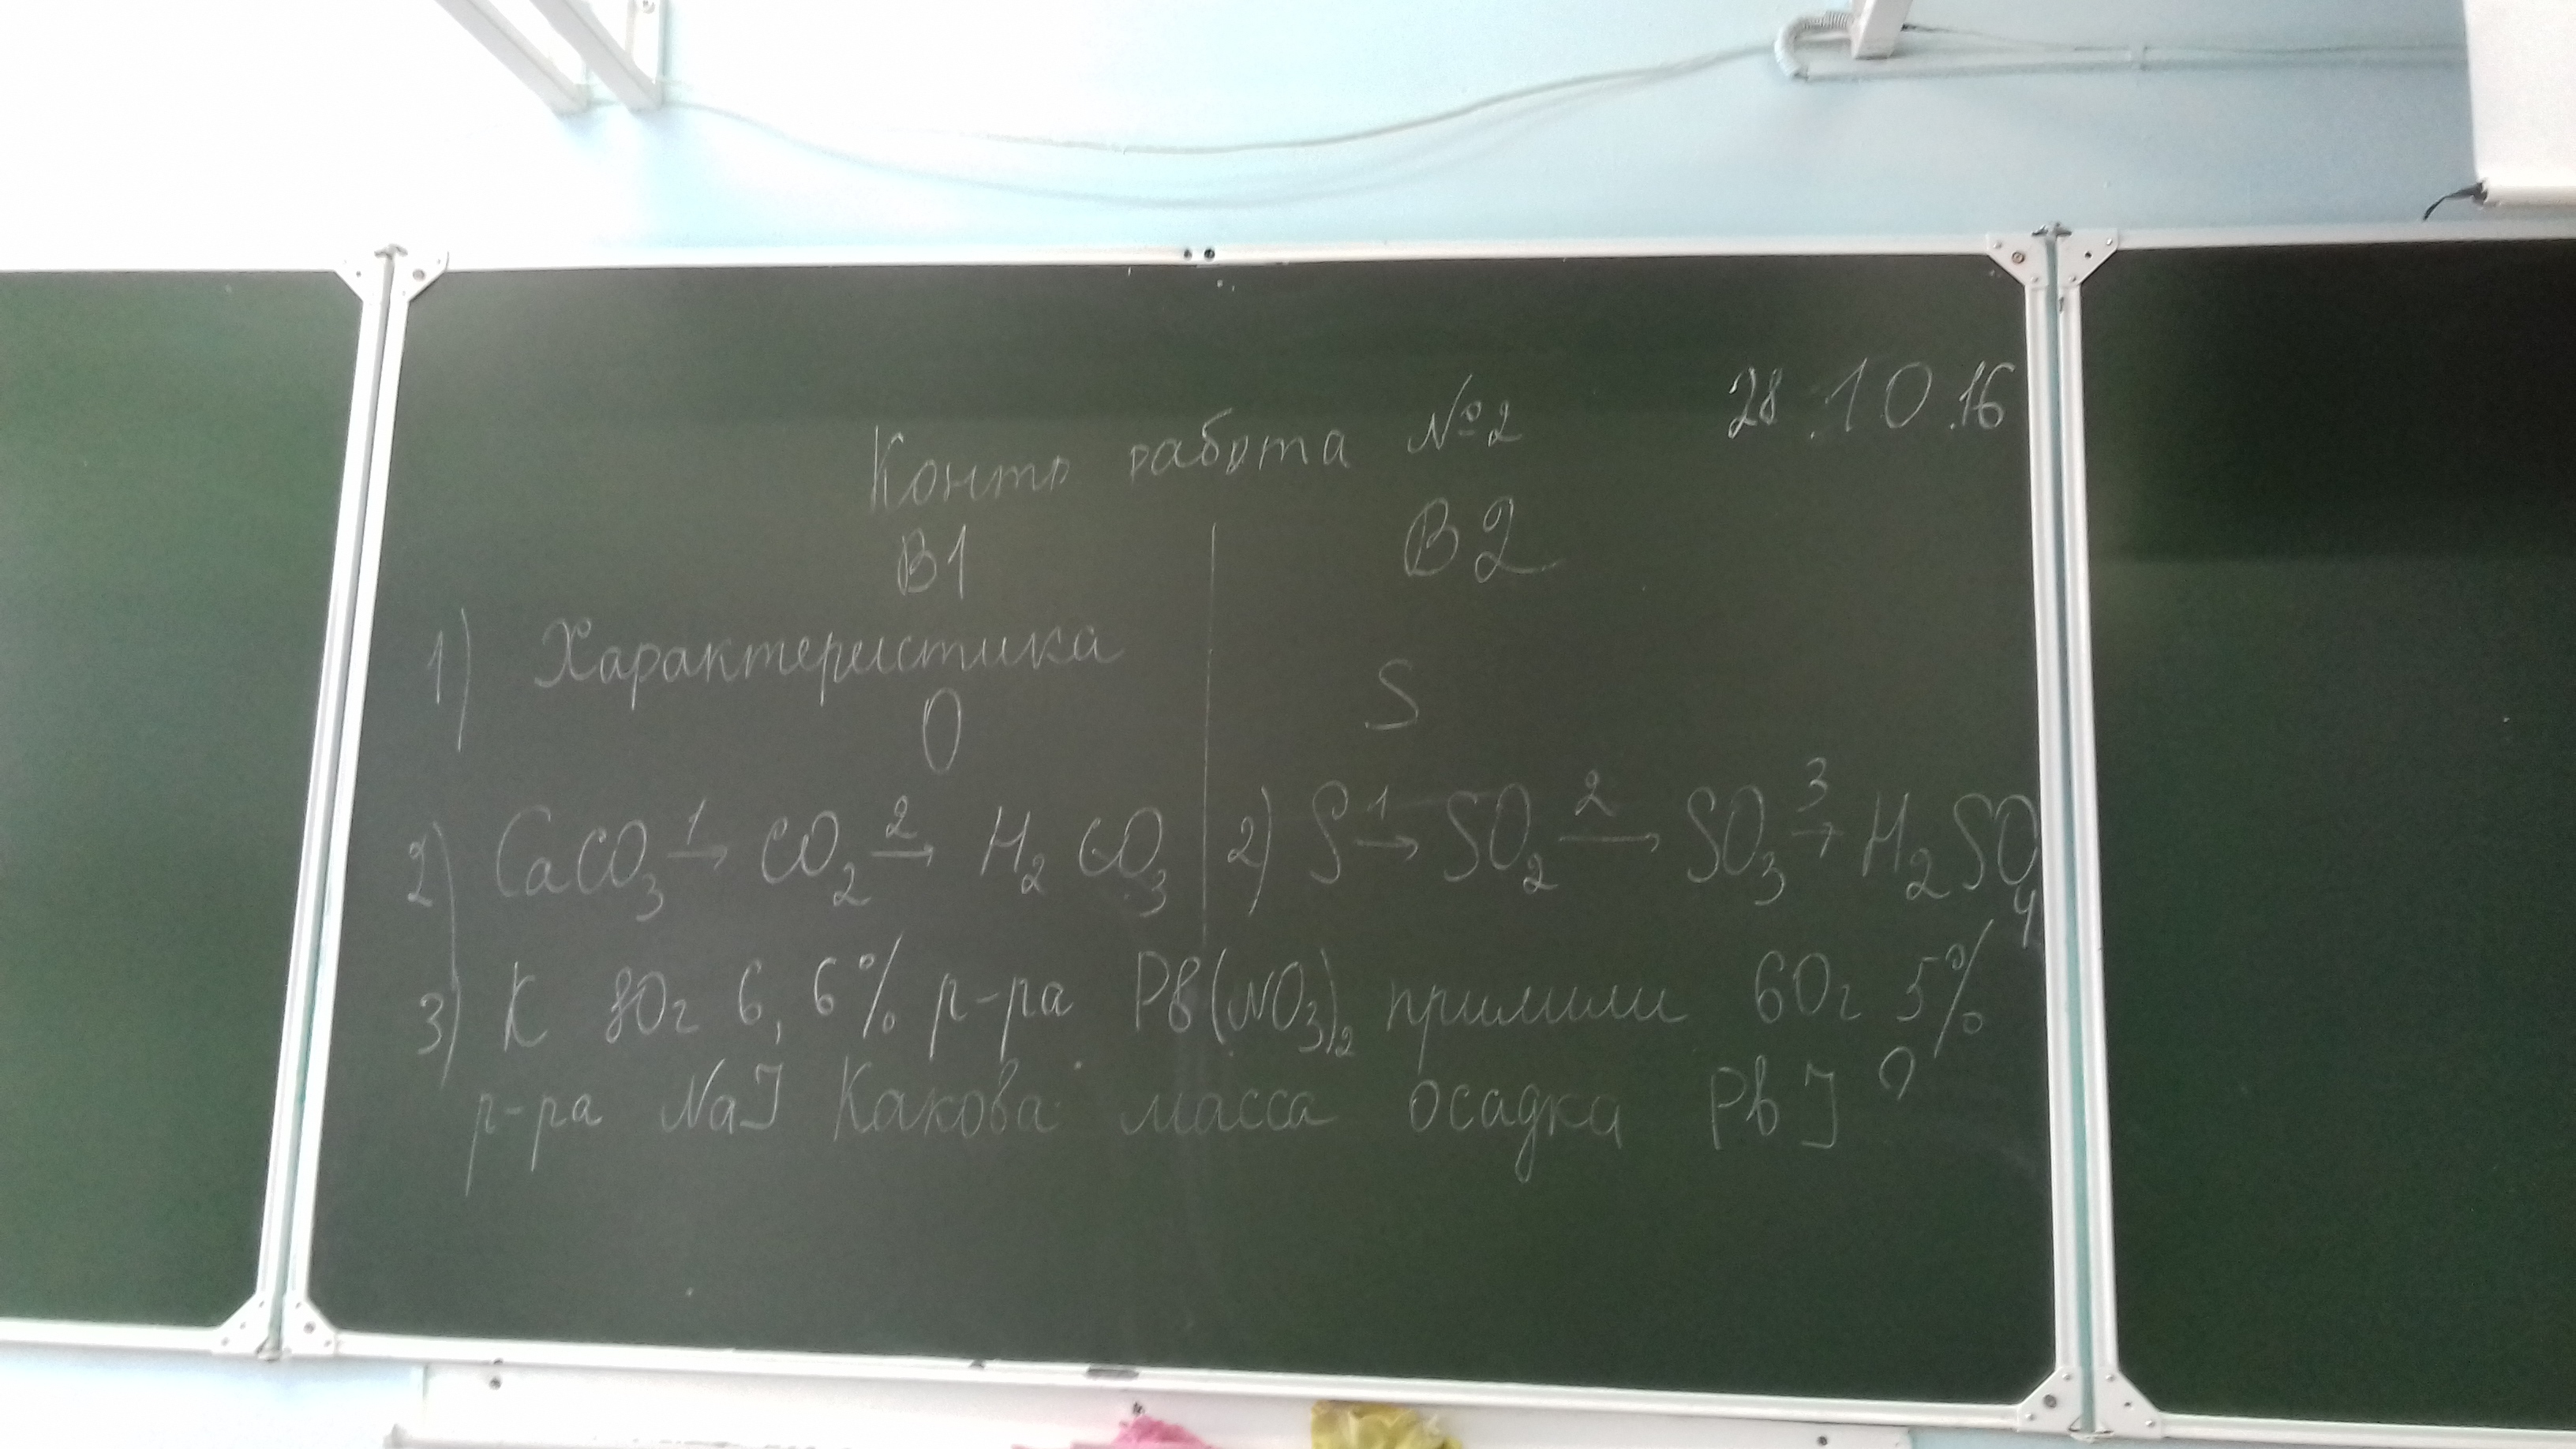 28.10.16
Контр работа №2
В1 В2
1) Характеристика
О S
2) CaCO₃ 1→ CO₂ 2→ H₂CO₃ 2) S 1→ SO₂ 2→ SO₃ 3→ H₂SO₄
3) К 80г 6,6% р-ра Pb(NO₃)₂ прилили 60г 5%
р-ра NaJ Какова масса осадка PbJ ?